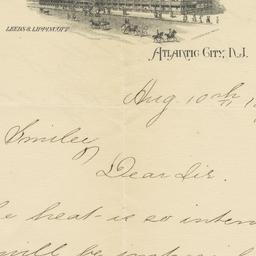 LEEDS & LIPPINCOTT
ATLANTIC CITY, N.J.
Aug. 10th
Smiley
Dear Sir.
heat is so
will be